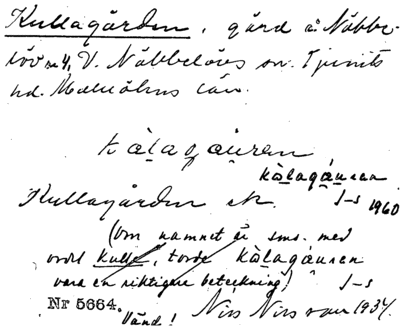 Kullagården, gård å Näbbe-
löv nr 4, V. Näbbelövs sn. Ljunits
hd. Malmöhus län.
kàlagáuren
kàlagáuren
Kullagården
I-s 1960
(Om namnet är sms. med
ordet kulle, torde kàlagáuren
vara en riktigare beteckning) I-s
Nr 5664.
Vänd! Nils Nilsson 1934.